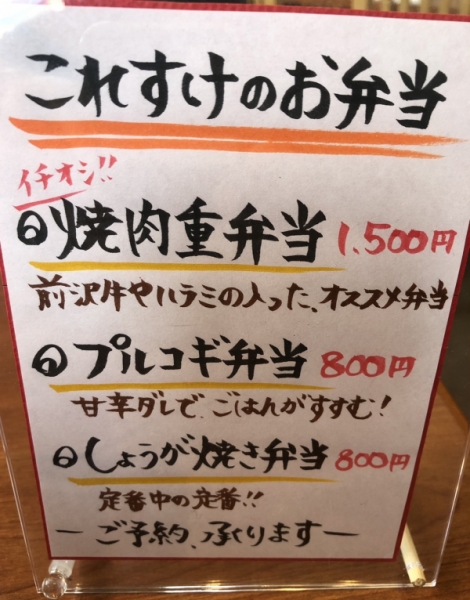 これすけのお弁当
イチオシ!!
焼肉重弁当 1,500円
前沢牛やハラミの入った、オススメ弁当
プルコギ弁当 800円
甘辛ダレで、ごはんがすすむ!
しょうが焼き弁当 800円
定番中の定番!!
ーご予約、承りますー